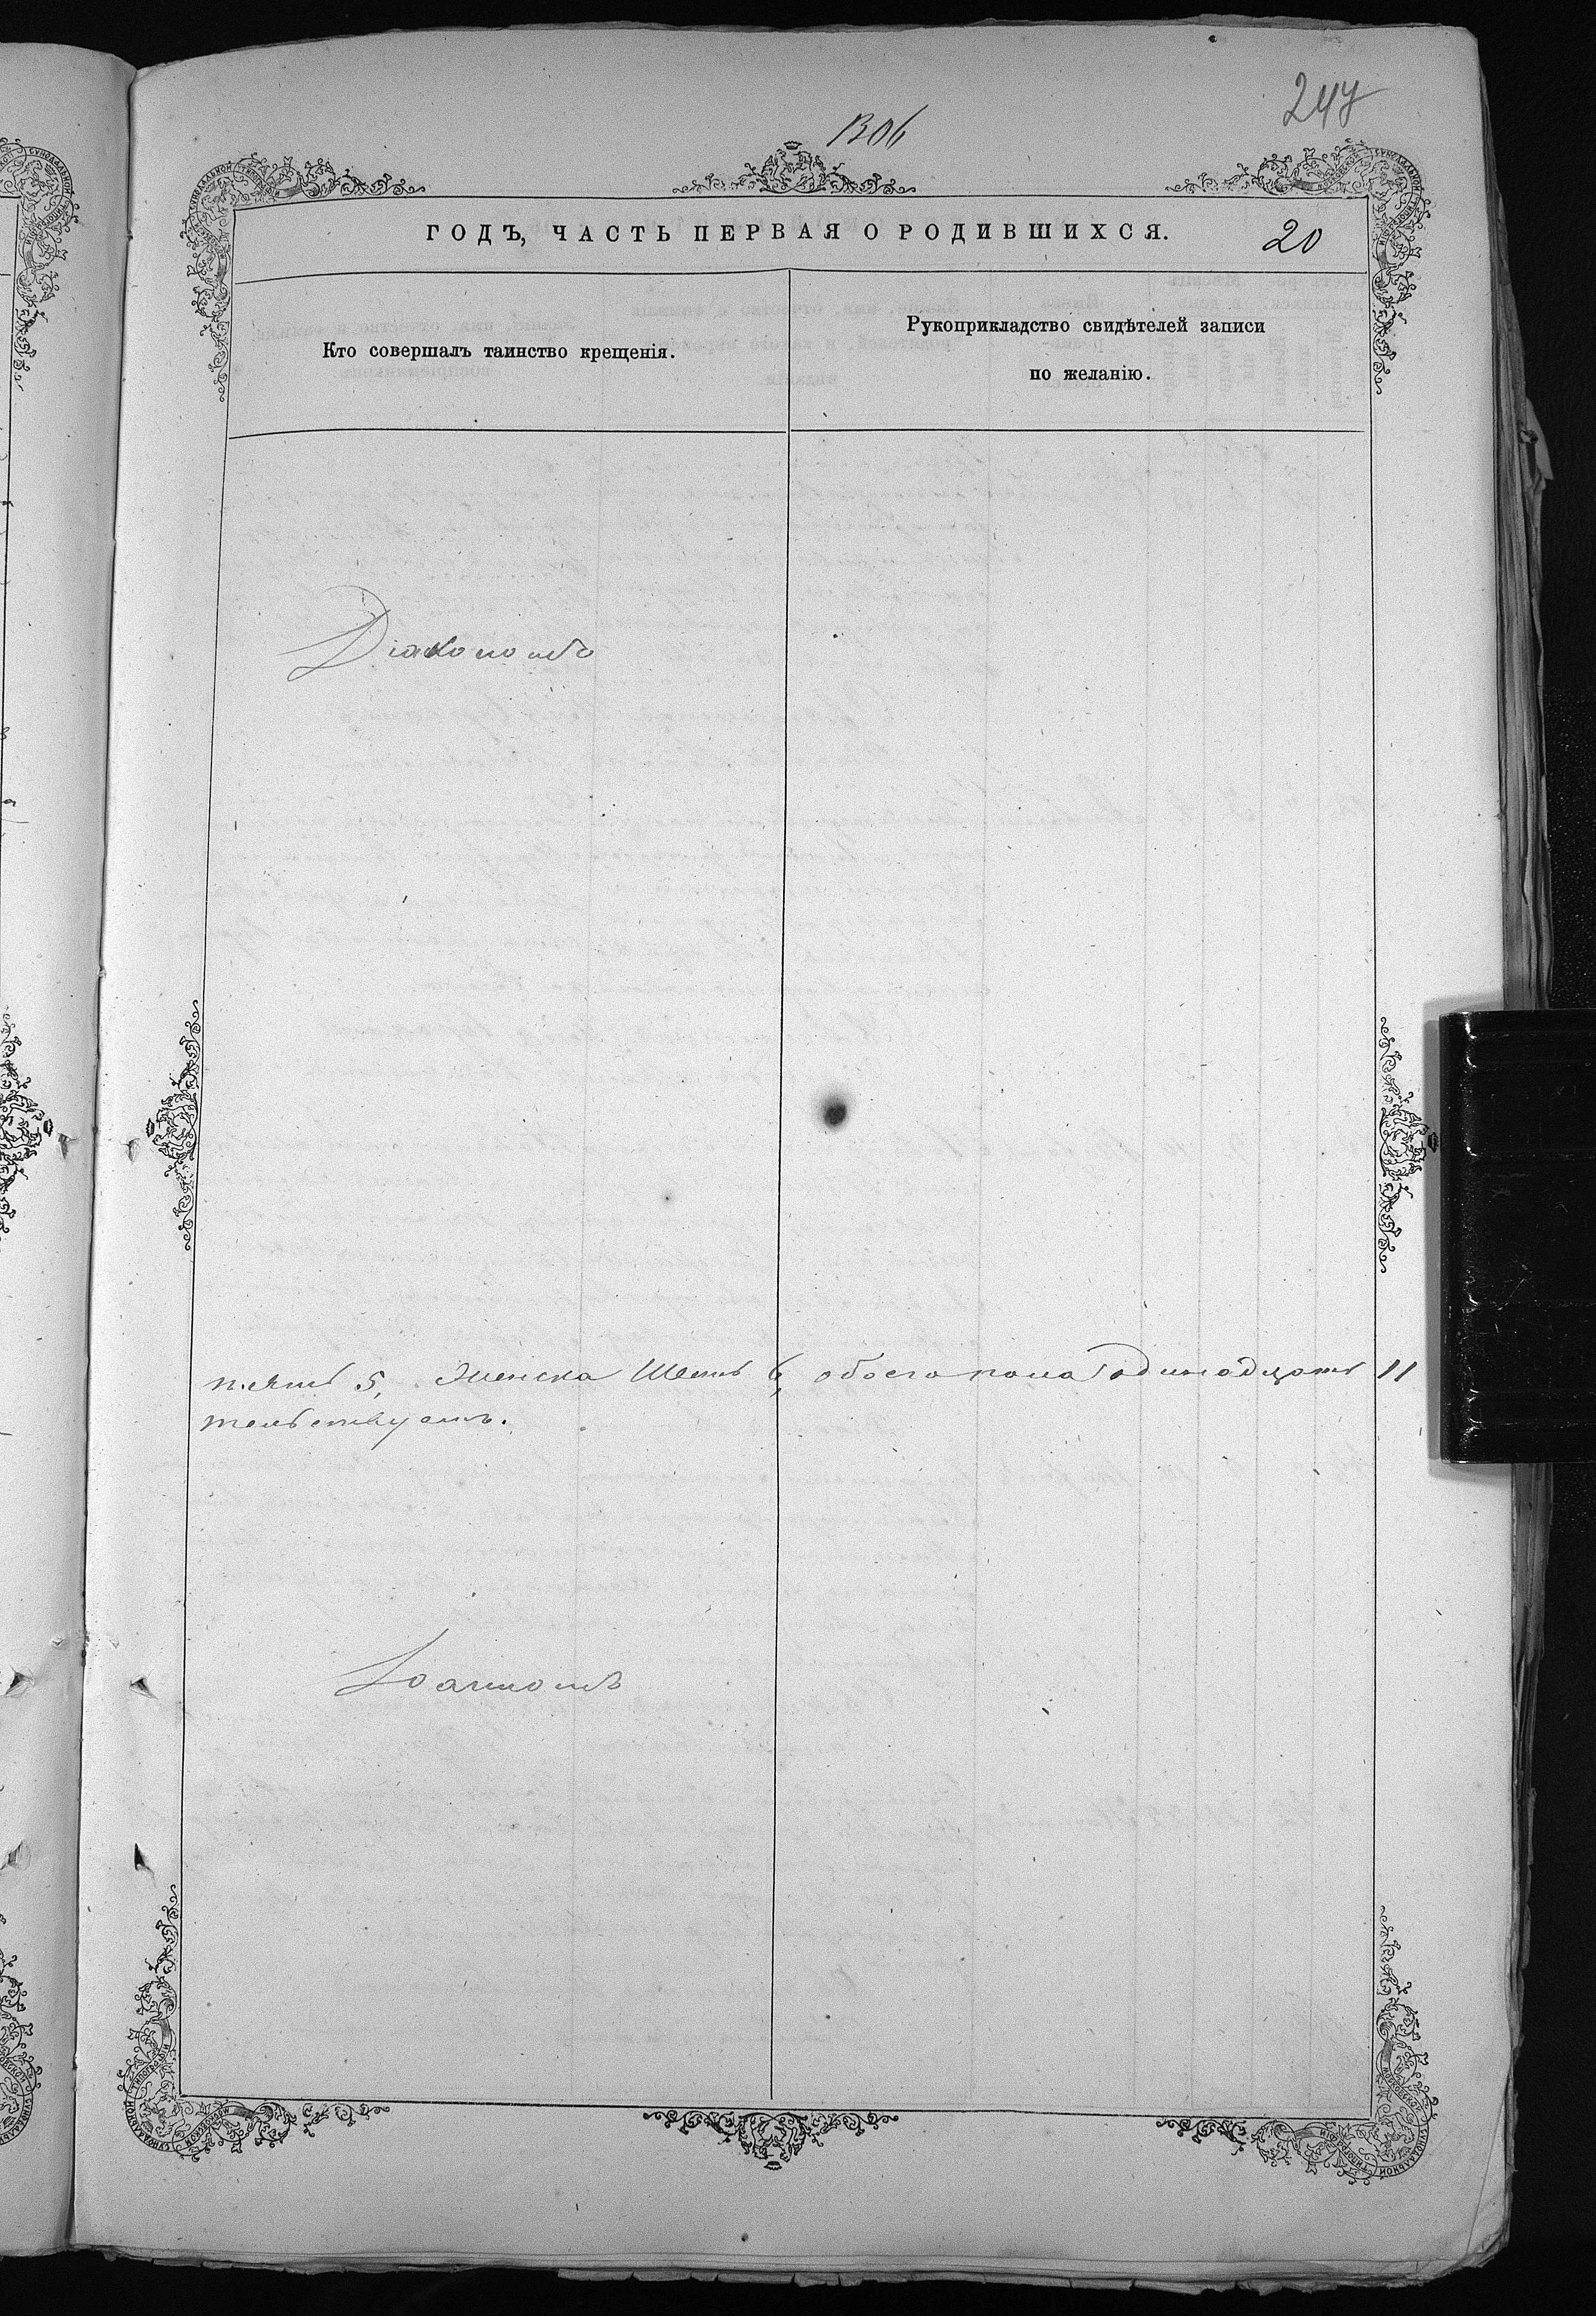 247
1306
ГОДЪ, ЧАСТЬ ПЕРВАЯ О РОДИВШИХСЯ. 20
Кто совершалъ таинство крещенія.
Рукоприкладство свидѣтелей записи
по желанію.
Діакономъ
пять 5, женска шесть 6, обоего пола одинадцать 11
тельствуемъ.
Іоанномъ